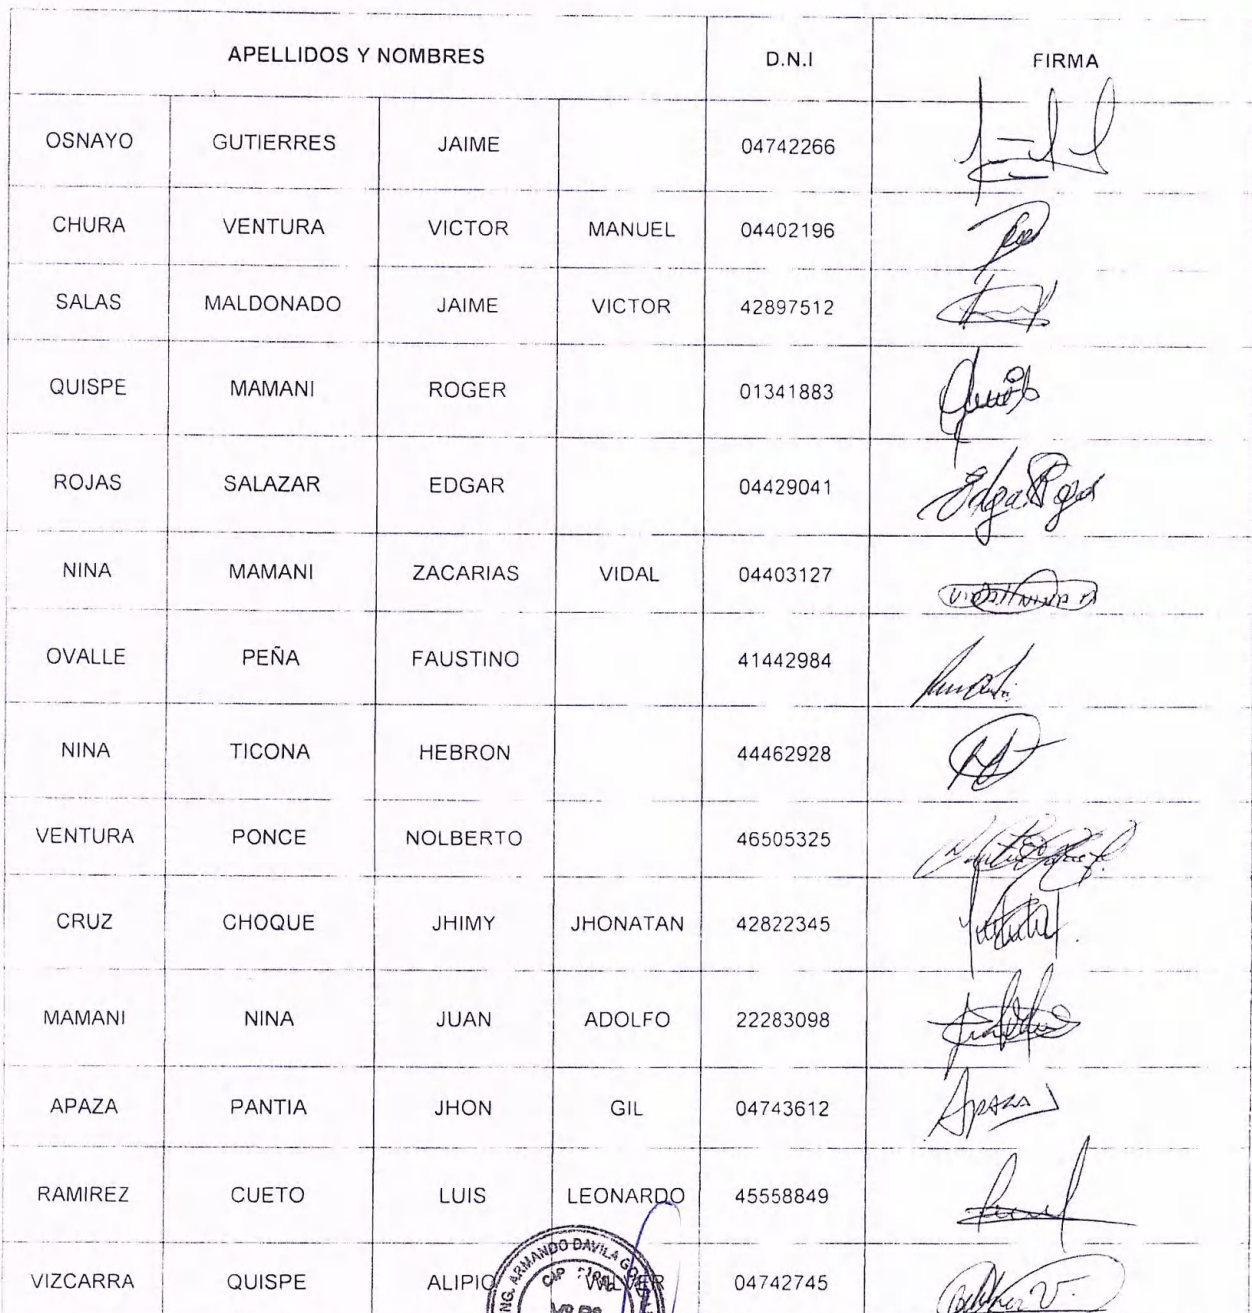 APELLIDOS Y NOMBRES D.N.I FIRMA
OSNAYO GUTIERRES JAIME 04742266
CHURA VENTURA VICTOR MANUEL 04402196
SALAS MALDONADO JAIME VICTOR 42897512
QUISPE MAMANI ROGER 01341883
ROJAS SALAZAR EDGAR 04429041 Edgar Rojas
NINA MAMANI ZACARIAS VIDAL 04403127
OVALLE PEÑA FAUSTINO 41442984
NINA TICONA HEBRON 44462928
VENTURA PONCE NOLBERTO 46505325
CRUZ CHOQUE JHIMY JHONATAN 42822345
MAMANI NINA JUAN ADOLFO 22283098
APAZA PANTIA JHON GIL 04743612 APAZA
RAMIREZ CUETO LUIS LEONARDO 45558849
VIZCARRA QUISPE ALIPIO WALVER 04742745
ING. ARMANDO DAVILA
CIP